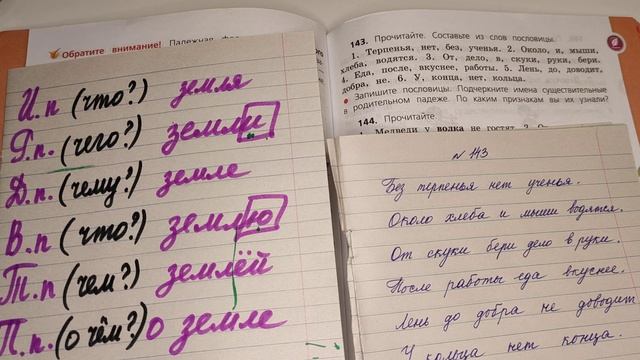 Обратите внимание! Падежная
143. Прочитайте. Составьте из слов пословицы.
1. Терпенья, нет, без, ученья. 2. Около, и, мыши,
хлеба, водятся. 3. От, дело, в, скуки, руки, бери.
4. Еда, после, вкуснее, работы. 5. Лень, до, доводит,
добра, не. 6. У, конца, нет, кольца.
Запишите пословицы. Подчеркните имена существительные
в родительном падеже. По каким признакам вы их узнали?
144. Прочитайте.
1. Медведи у волка не гостят. 2.
И.п (что?) земля
Р.п. (чего?) земли
Д.п. (чему?) земле
В.п (что?) землю
Т.п (чем?) землёй
П.п. (о чём?) о земле
N 143
Без терпенья нет ученья.
Около хлеба и мыши водятся.
От скуки бери дело в руки.
После работы еда вкуснее.
Лень до добра не доводит
У кольца нет конца.